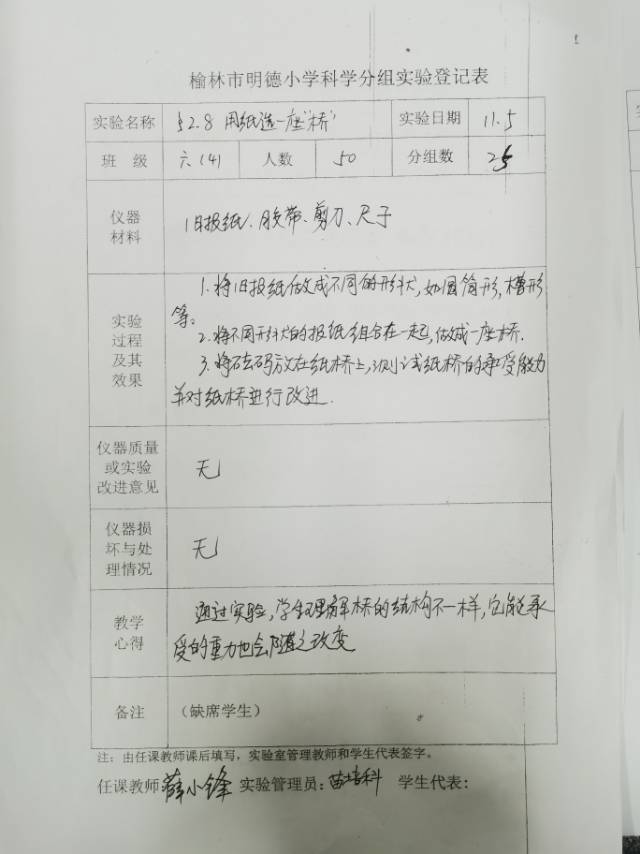 榆林市明德小学科学分组实验登记表
实验名称 §2.8 用纸造一座"桥" 实验日期 11.5
班 级 六(4) 人数 50 分组数 25
仪器
材料
旧报纸、胶带、剪刀、尺子
实验
过程
及其
效果
1.将旧报纸做成不同的形状,如圆筒形,槽形
等。
2.将不同形状的报纸组合在一起,做成一座桥.
3.将砝码放在纸桥上,测试纸桥的承受能力
并对纸桥进行改进.
仪器质量
或实验
改进意见
无
仪器损
坏与处
理情况
无
教学
心得
通过实验,学生理解桥的结构不一样,它能承
受的重力也会随之改变
备注 (缺席学生)
注:由任课教师课后填写,实验室管理教师和学生代表签字。
任课教师 薛小锋 实验管理员:苗培科 学生代表: